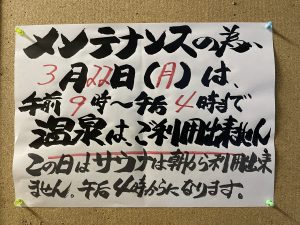 メンテナンスの為、
3月22日(月)は、
午前9時〜午后4時まで
温泉は、ご利用出来ません
この日はサウナは朝から利用出来
ません。午后4時からになります。